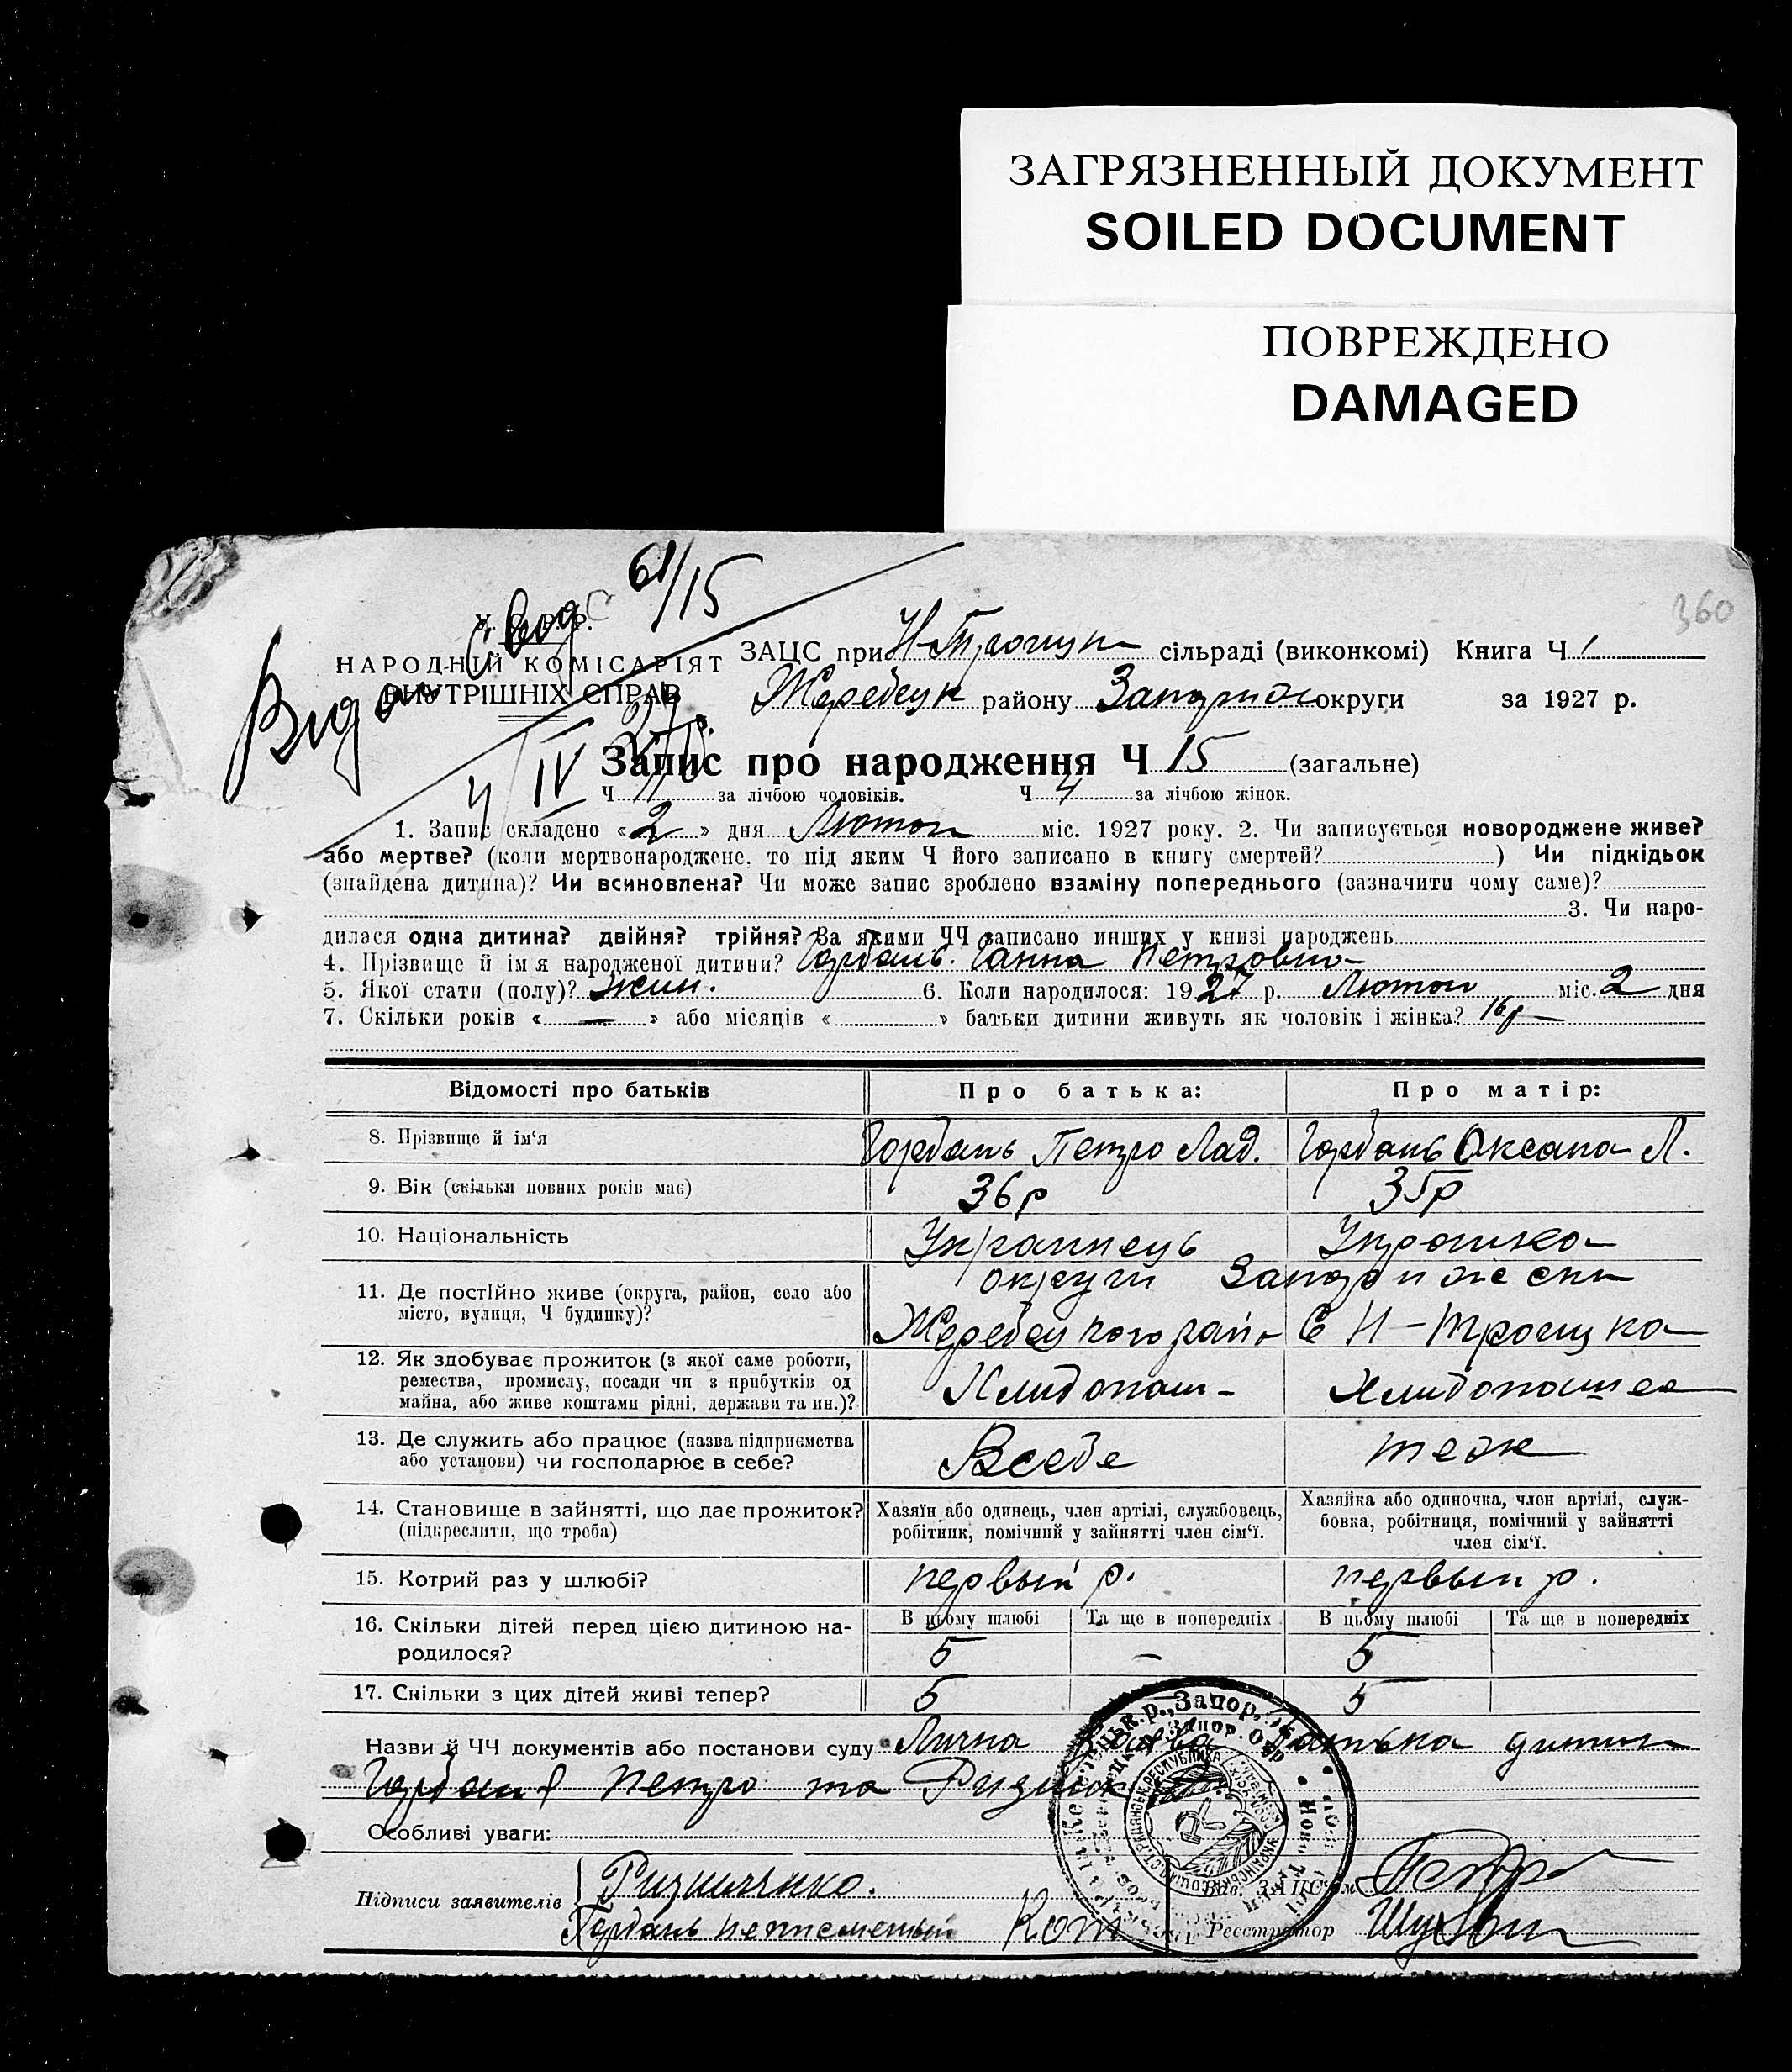 ЗАГРЯЗНЕННЫЙ ДОКУМЕНТ
SOILED DOCUMENT
ПОВРЕЖДЕНО
DAMAGED
360
61/15
У.С.Р.Р.
НАРОДНІЙ КОМІСАРІЯТ
ВНУТРІШНІХ СПРАВ
ЗАЦС при Н-Троицьк сільраді (виконкомі) Книга Ч 1
Жеребецьк району Запориж округи за 1927 р.
4/IV
Запис про народження Ч 15 (загальне)
Ч 11 за лічбою чоловіків. Ч 4 за лічбою жінок.
1. Запис складено «2» дня Лютого міс. 1927 року. 2. Чи записується новороджене живе?
або мертве? (коли мертвонароджене, то під яким Ч його записано в книгу смертей? ) Чи підкідьок
(знайдена дитина)? Чи всиновлена? Чи може запис зроблено взаміну попереднього (зазначити чому саме)?
3. Чи наро-
дилася одна дитина? двійня? трійня? За якими ЧЧ записано инших у книзі народжень
4. Прізвище й імя народженої дитини? Горбань Ганна Петровна
5. Якої стати (полу)? жин. 6. Коли народилося: 1927 р. Лютого міс. 2 дня
7. Скільки років «—» або місяців « » батьки дитини живуть як чоловік і жінка? 16 р
Відомості про батьків Про батька: Про матір:
8. Прізвище й ім‘я Горбань Петро Лад. Горбань Оксана Л.
9. Вік (скільки повних років має) 36 р 35 р
10. Національність Украинець Украинка
11. Де постійно живе (округа, район, село або
місто, вулиця, Ч будинку)?
округи Запорижски
Жеребецького райо С Н-Троицка
12. Як здобуває прожиток (з якої саме роботи,
ремества, промислу, посади чи з прибутків од
майна, або живе коштами рідні, держави та ин.)?
Хлидопаш- Хлидопашеа
13. Де служить або працює (назва підприємства
або установи) чи господарює в себе?
Всебе теж
14. Становище в зайнятті, що дає прожиток?
(підкреслити, що треба)
Хазяїн або одинець, член артілі, службовець,
робітник, помічний у зайнятті член сім‘ї.
Хазяйка або одиночка, член артілі, служ-
бовка, робітниця, помічний у зайнятті
член сім‘ї.
15. Котрий раз у шлюбі? первый р. первый р.
16. Скільки дітей перед цією дитиною на-
родилося?
В цьому шлюбі Та ще в попередніх В цьому шлюбі Та ще в попередніх
5 — 5
17. Скільки з цих дітей живі тепер? 5 5
Назви й ЧЧ документів або постанови суду Лична батька дитини
Горбаня Петро та
Особливі уваги:
Підписи заявителів
Горбань неписменый
Зав. ЗАЦС‘ом
Реєстратор